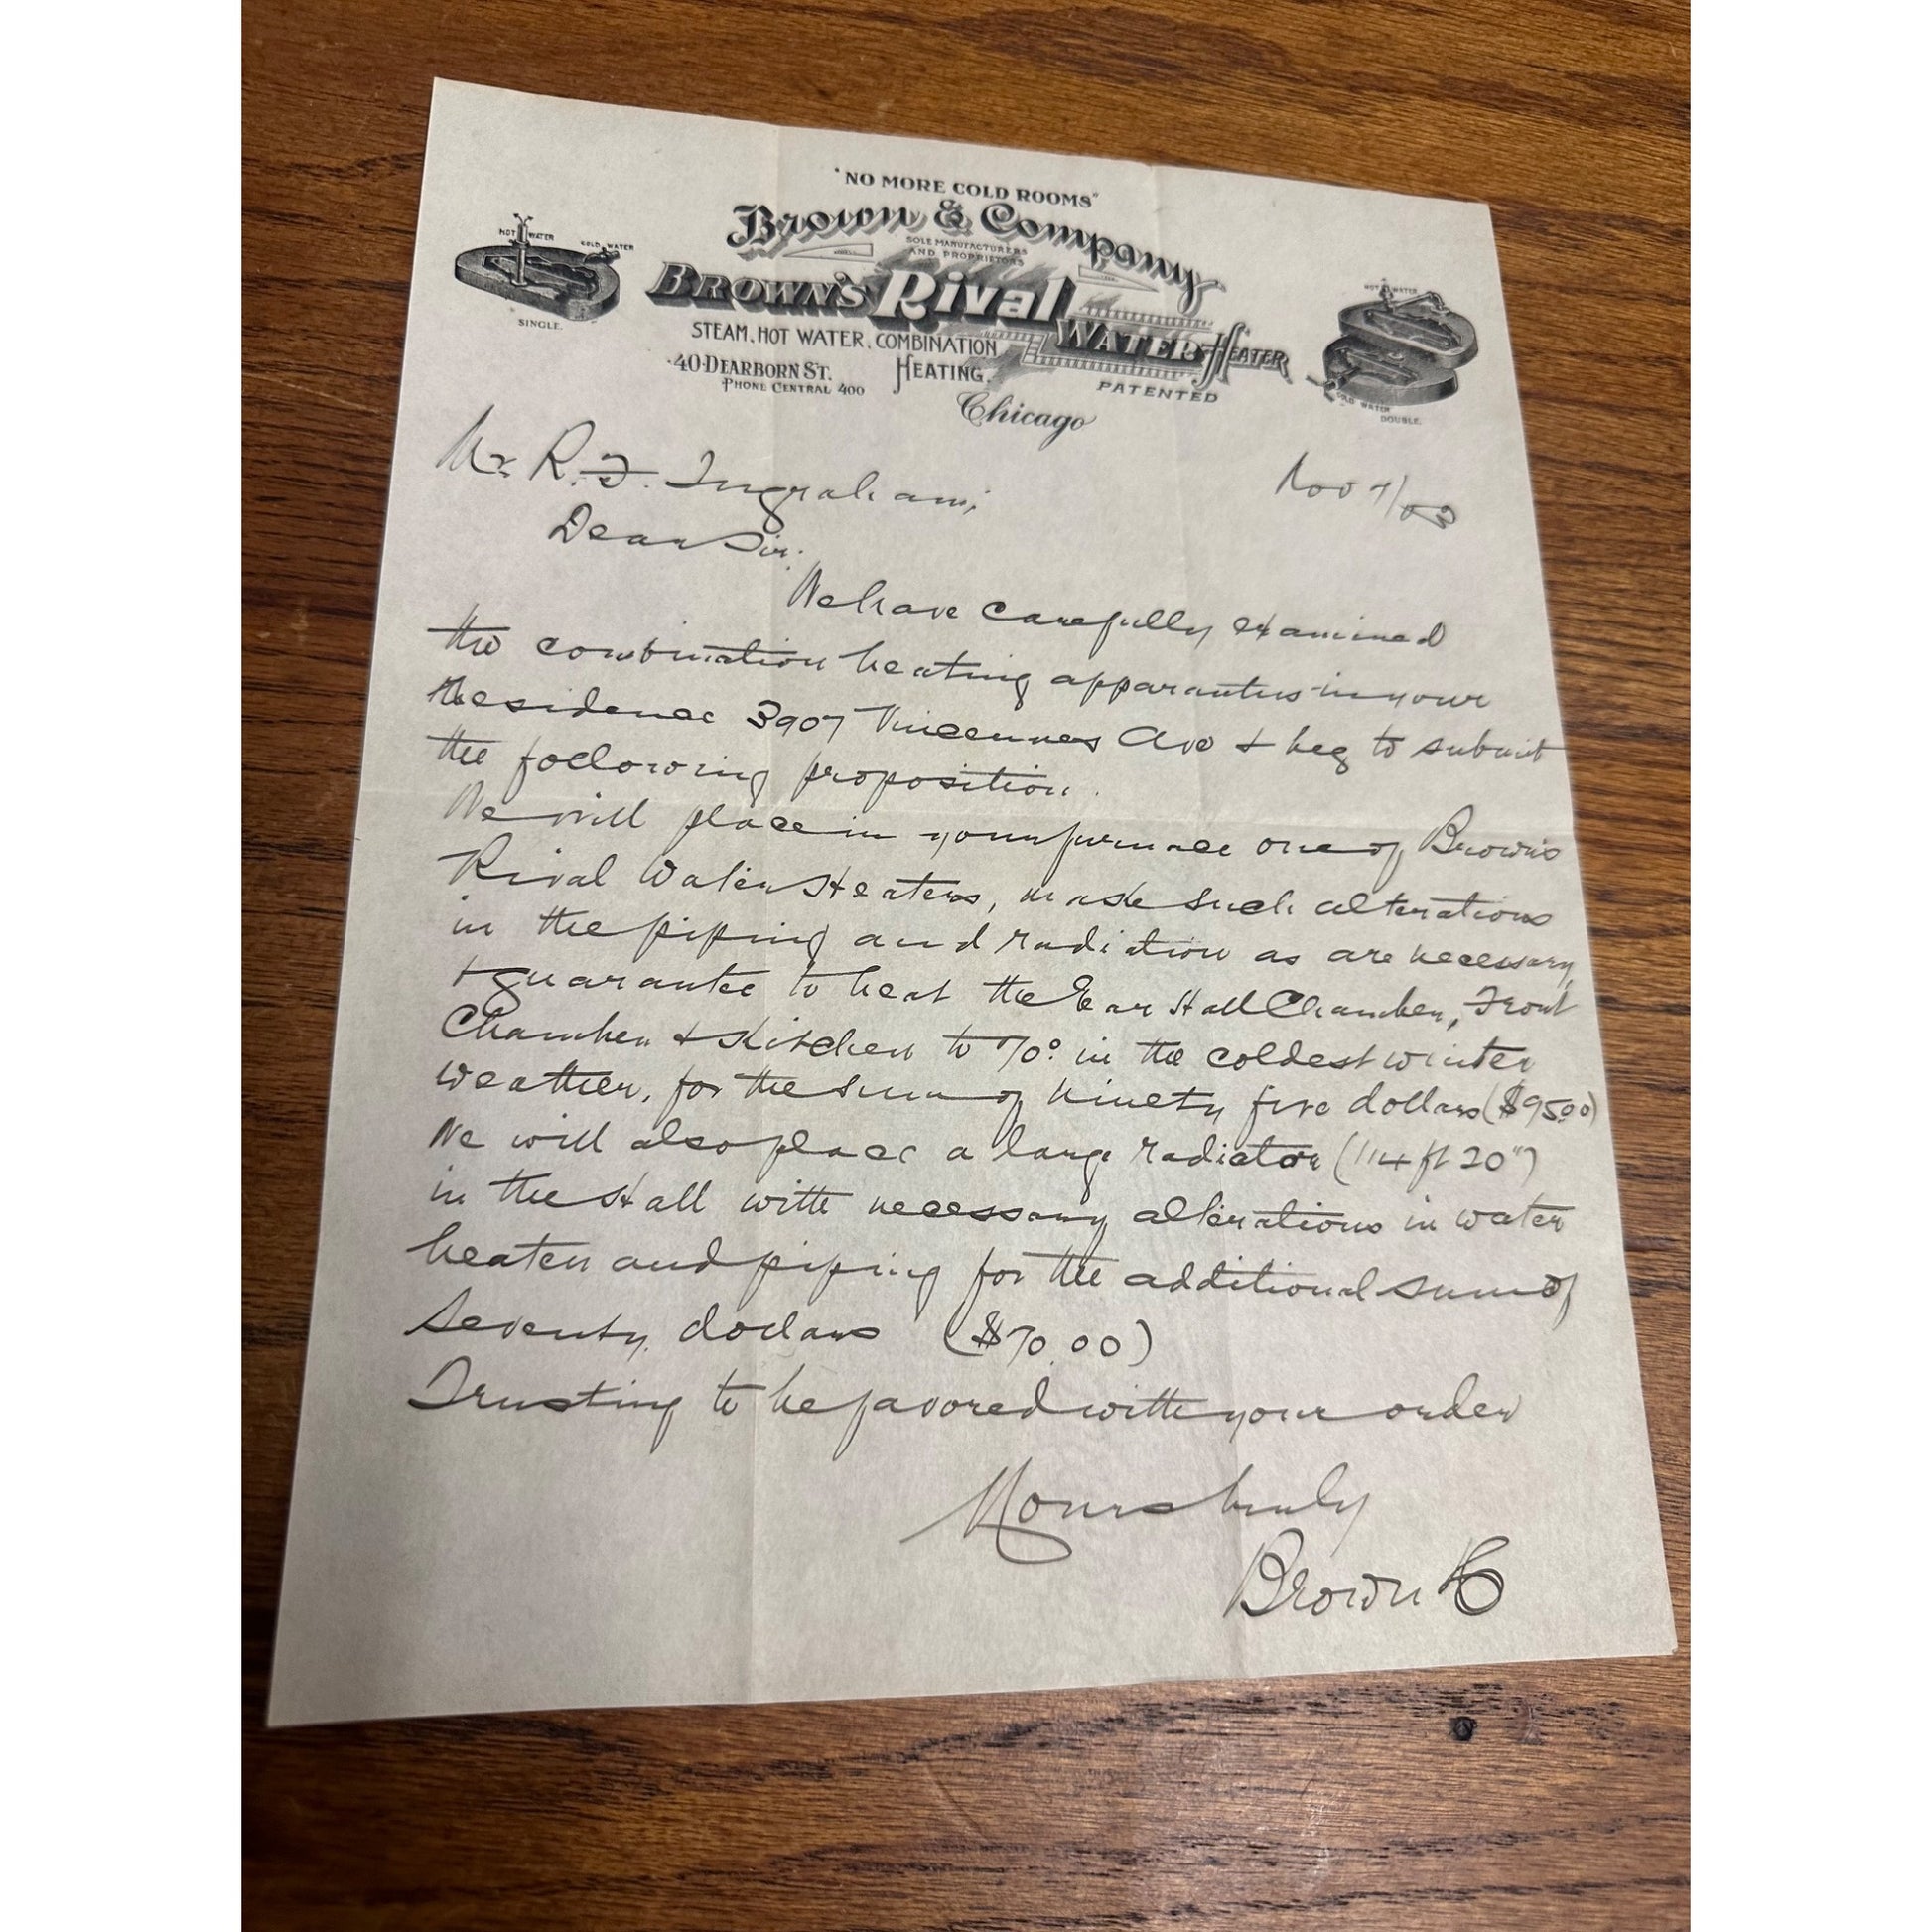 "NO MORE COLD ROOMS"
Brown & Company
SOLE MANUFACTURERS
AND PROPRIETORS
BROWN'S Rival WATER HEATER
STEAM. HOT WATER. COMBINATION
HEATING.
PATENTED
40 DEARBORN ST.
PHONE CENTRAL 400
Chicago
HOT WATER
COLD WATER
SINGLE.
HOT WATER
COLD WATER
DOUBLE.
Nov 7/
Mr R. F. Ingraham,
Dear Sir:
We have carefully examined
the combination heating apparantus in your
Residence 3907 Vincennes Ave & beg to submit
the following proposition.
We will place in your furnace one of Brown's
Rival Water Heaters, make such alterations
in the piping and radiation as are necessary,
& guarantee to heat the Hall Chamber, Front
Chamber & Kitchen to 70° in the coldest winter
weather, for the sum of ninety five dollars ($95.00)
We will also place a large radiator (114 ft 20")
in the Hall with necessary alterations in water
heater and piping for the additional sum of
Seventy dollars ($70.00)
Trusting to be favored with your order
Yours truly
Brown & Co